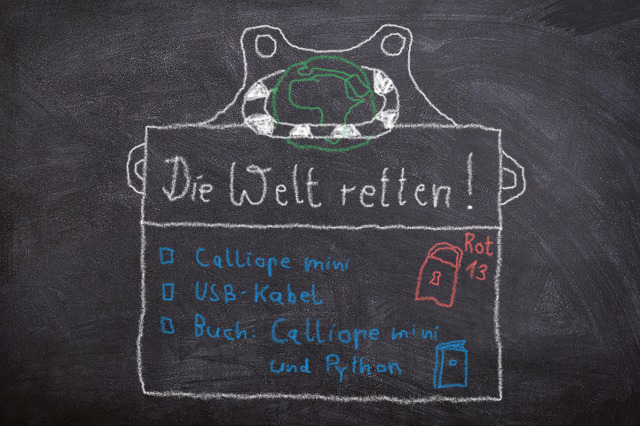 Die Welt retten!
Rot
13
Calliope mini
USB-Kabel
Buch: Calliope mini
und Python